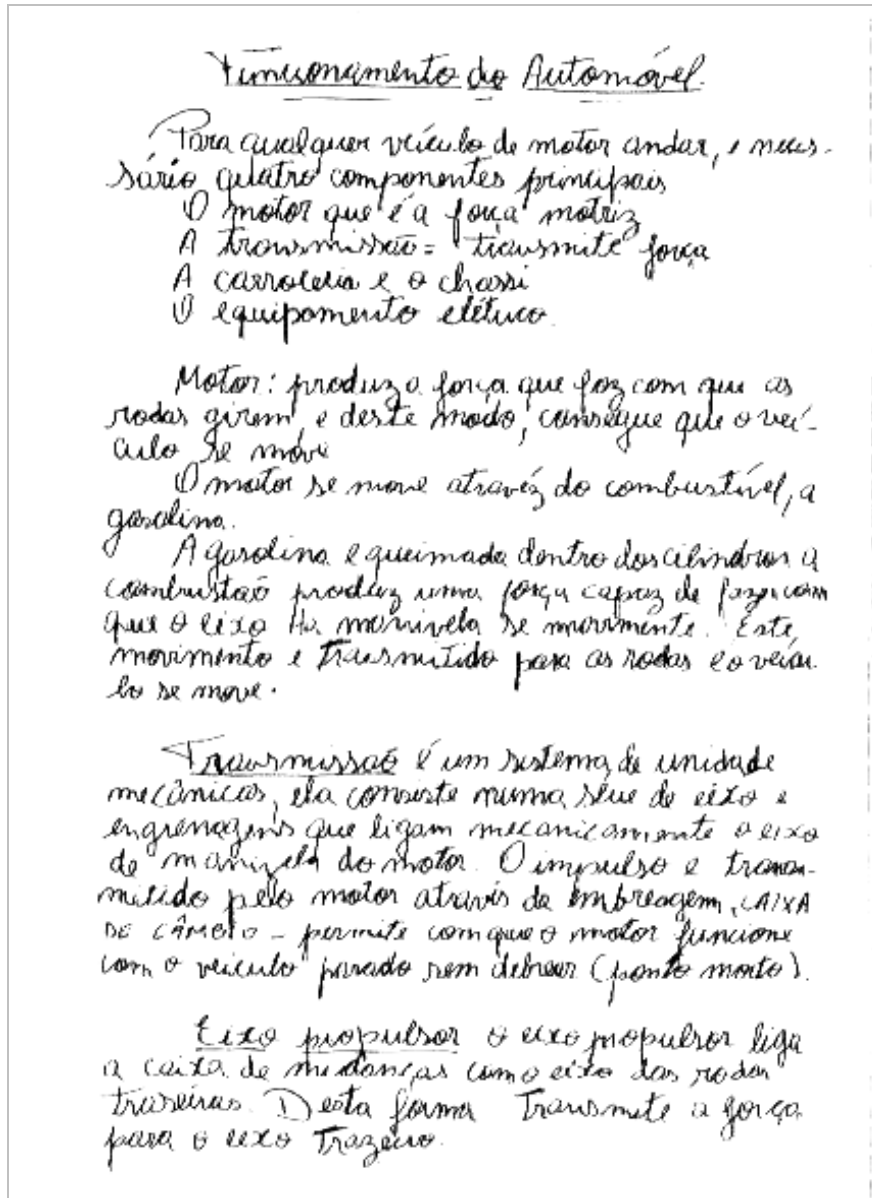 Funcionamento do Automóvel.
Para qualquer veículo de motor andar, e neces-
sário quatro componentes principais
O motor que é a força motriz
A transmissão = transmite força
A carroceria e o chassi
O equipamento elétrico.
Motor: produz a força que faz com que as
rodas girem, e deste modo, consegue que o veí-
culo se move
O motor se move atravéz do combustível, a
gasolina.
A gasolina e queimada dentro dos cilindros a
combustão produz uma força capaz de fazer com
que o eixo manivela se movimente. Este,
movimento e transmitido para as rodas e o veícu
lo se move.
Transmissão é um sistema, de unidade
mecânicas, ela consiste numa série de eixo e
engrenagens que ligam mecanicamente o eixo
de manizela do motor. O impulso e trans-
mitido pelo motor através da embreagem, CAIXA
DE CÂMBIO - permite com que o motor funcione
com o veiculo parado sem debrear (ponto morto).
Eixo propulsor o eixo propulsor liga
a caixa de mudanças com o eixo das rodas
traseiras. Desta forma Transmite a força
para o eixo Trazeiro.